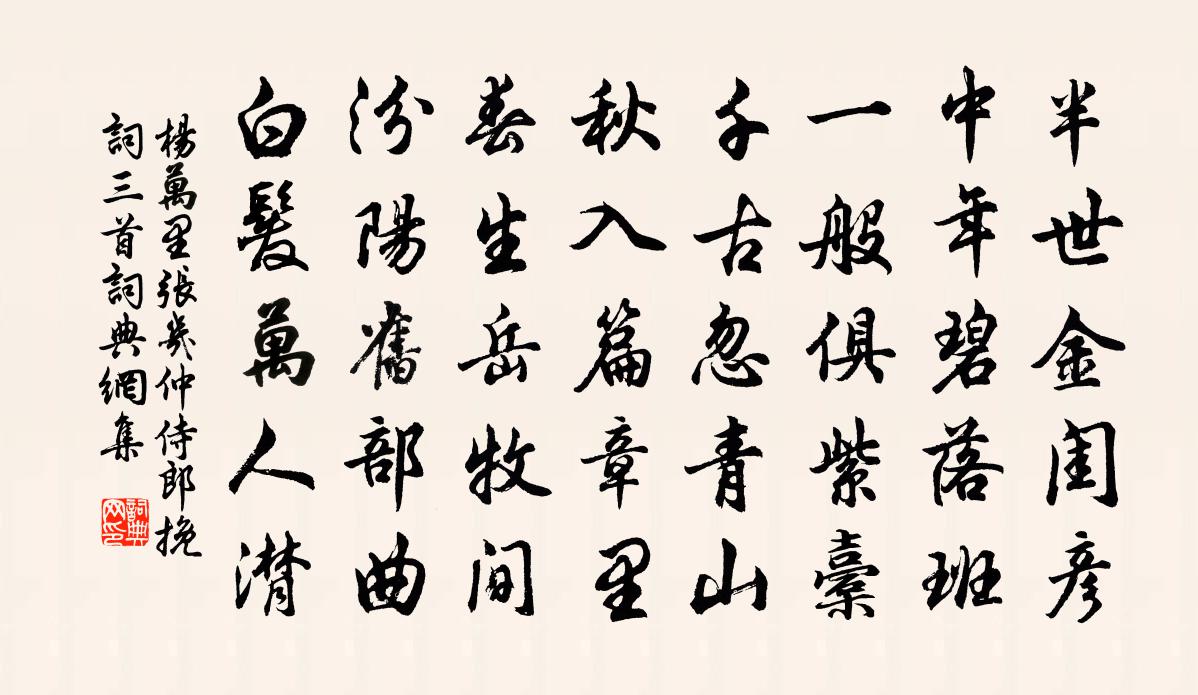 半世金閨彥
中年碧落班
一般俱紫橐
千古忽青山
秋入篇章里
春生岳牧間
汾陽舊部曲
白髮萬人潸
楊萬里張幾仲侍郎挽
詞三首詞典網集
詞典
网印